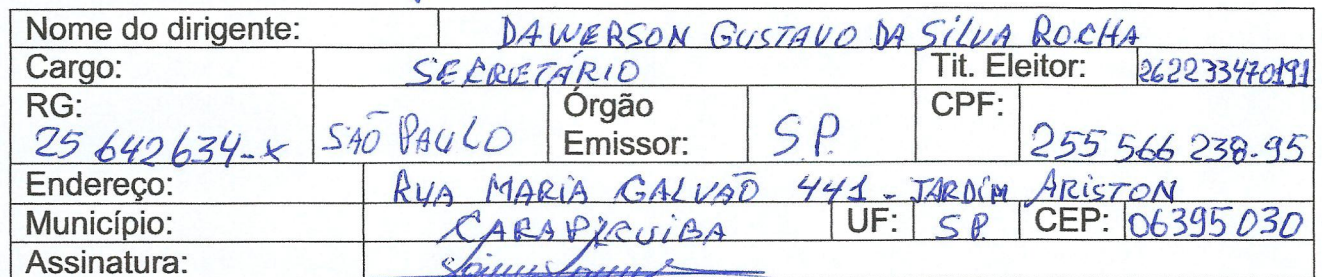 Nome do dirigente: DAWERSON GUSTAVO DA SILVA ROCHA
Cargo: SECRETÁRIO Tit. Eleitor: 262233470191
RG: 25 642634-x SÃO PAULO Órgão Emissor: S.P. CPF: 255 566 238-95
Endereço: RUA MARIA GALVÃO 441 - JARDIM ARISTON
Município: CARAPICUIBA UF: SP. CEP: 06395030
Assinatura: